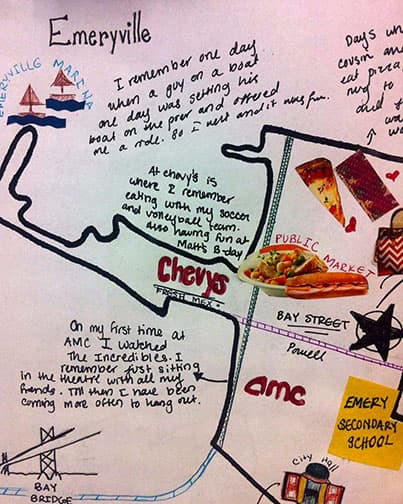 Emeryville
EMERYVILLE MARINA
I remember one day
when a guy on a boat
one day was setting his
boat on the pier and offered
me a ride. So I went and it was fun.
Days wh
cousin and
eat pizza,
rug to
and
w
At chevy's is
where I remember
eating with my soccer
and volleyball team.
also having fun at
Matt's B-day
Chevys
FRESH MEX
PUBLIC MARKET
BAY STREET
Powell
On my first time at
AMC I watched
The Incredibles. I
remember just sitting
in the theatre with all my
friends. Till then I have been
coming more often to hang out.
amc
EMERY
SECONDARY
SCHOOL
City Hall
BAY
BRIDGE